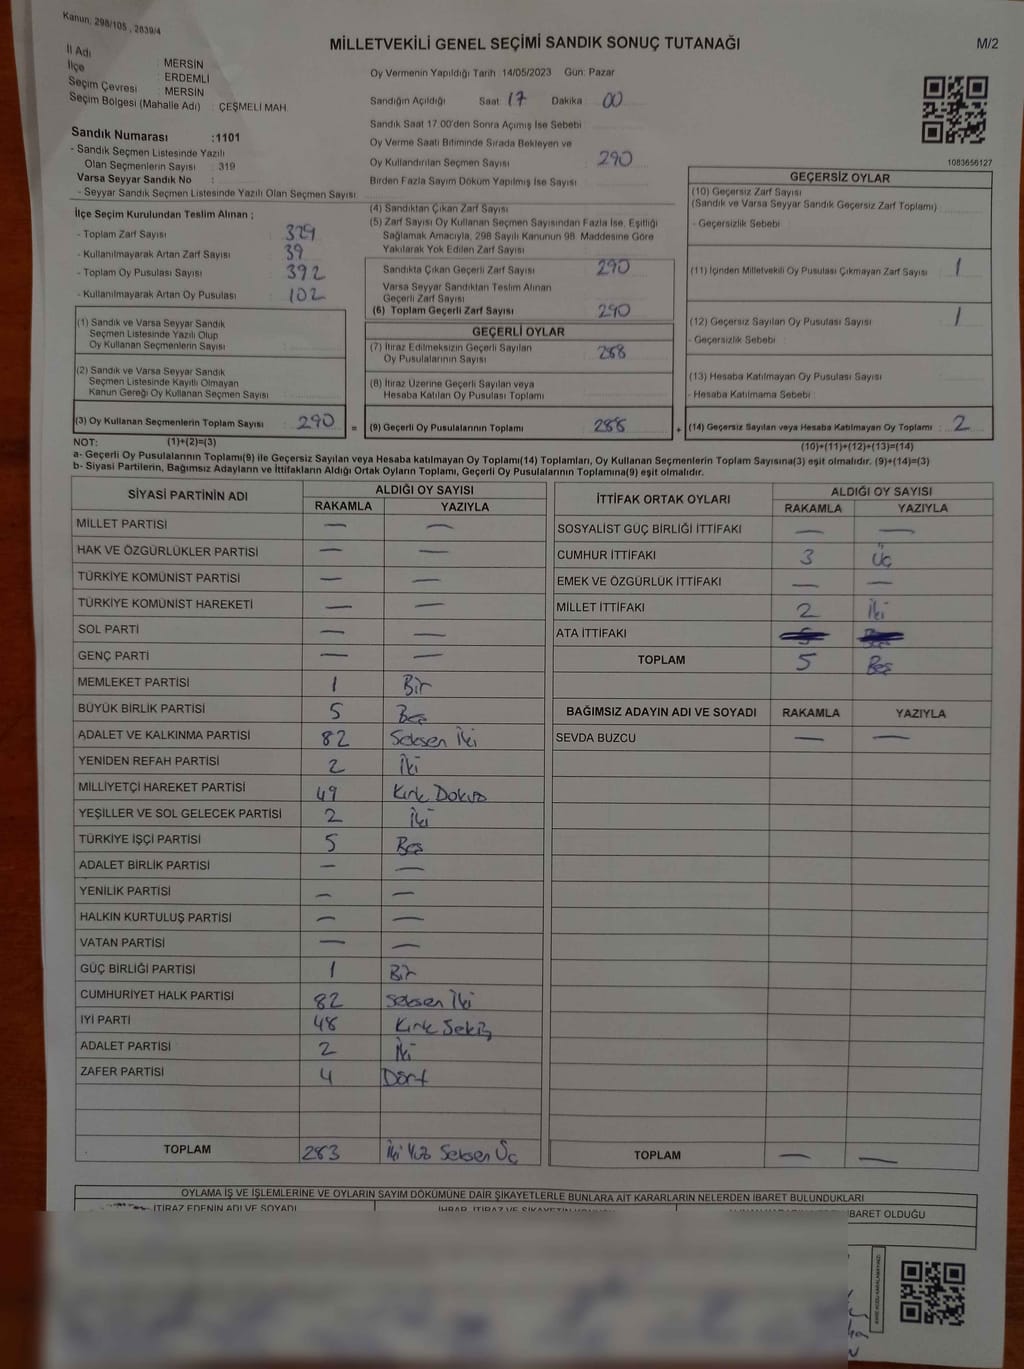 Kanun; 298/105 , 2839/4
MİLLETVEKİLİ GENEL SEÇİMİ SANDIK SONUÇ TUTANAĞI
M/2
İl Adı : MERSİN
İlçe : ERDEMLİ
Seçim Çevresi : MERSİN
Seçim Bölgesi (Mahalle Adı) : ÇEŞMELİ MAH.
Sandık Numarası :1101
- Sandık Seçmen Listesinde Yazılı
Olan Seçmenlerin Sayısı : 319
Varsa Seyyar Sandık No :
- Seyyar Sandık Seçmen Listesinde Yazılı Olan Seçmen Sayısı:
Oy Vermenin Yapıldığı Tarih :14/05/2023 Gün: Pazar
Sandığın Açıldığı Saat: 17 Dakika: 00
Sandık Saat 17.00'den Sonra Açımış İse Sebebi
Oy Verme Saati Bitiminde Sırada Bekleyen ve
Oy Kullandırılan Seçmen Sayısı 290
Birden Fazla Sayım Döküm Yapılmış İse Sayısı
1083656127
İlçe Seçim Kurulundan Teslim Alınan ;
- Toplam Zarf Sayısı : 329
- Kullanılmayarak Artan Zarf Sayısı : 39
- Toplam Oy Pusulası Sayısı : 392
- Kullanılmayarak Artan Oy Pusulası : 102
(1) Sandık ve Varsa Seyyar Sandık
Seçmen Listesinde Yazılı Olup
Oy Kullanan Seçmenlerin Sayısı :
(2) Sandık ve Varsa Seyyar Sandık
Seçmen Listesinde Kayıtlı Olmayan
Kanun Gereği Oy Kullanan Seçmen Sayısı :
(3) Oy Kullanan Seçmenlerin Toplam Sayısı : 290 =
(4) Sandıktan Çıkan Zarf Sayısı :
(5) Zarf Sayısı Oy Kullanan Seçmen Sayısından Fazla İse, Eşitliği
Sağlamak Amacıyla, 298 Sayılı Kanunun 98. Maddesine Göre
Yakılarak Yok Edilen Zarf Sayısı :
Sandıkta Çıkan Geçerli Zarf Sayısı : 290
Varsa Seyyar Sandıktan Teslim Alınan
Geçerli Zarf Sayısı :
(6) Toplam Geçerli Zarf Sayısı : 290
GEÇERLİ OYLAR
(7) İtiraz Edilmeksizin Geçerli Sayılan
Oy Pusulalarının Sayısı : 288
(8) İtiraz Üzerine Geçerli Sayılan veya
Hesaba Katılan Oy Pusulası Toplamı :
(9) Geçerli Oy Pusulalarının Toplamı : 288 +
GEÇERSİZ OYLAR
(10) Geçersiz Zarf Sayısı
(Sandık ve Varsa Seyyar Sandık Geçersiz Zarf Toplamı) :
- Geçersizlik Sebebi :
(11) İçinden Milletvekili Oy Pusulası Çıkmayan Zarf Sayısı : 1
(12) Geçersiz Sayılan Oy Pusulası Sayısı : 1
- Geçersizlik Sebebi :
(13) Hesaba Katılmayan Oy Pusulası Sayısı :
- Hesaba Katılmama Sebebi :
(14) Geçersiz Sayılan veya Hesaba Katılmayan Oy Toplamı : 2
NOT: (1)+(2)=(3)
(10)+(11)+(12)+(13)=(14)
a- Geçerli Oy Pusulasının Toplamı(9) ile Geçersiz Sayılan veya Hesaba katılmayan Oy Toplamı(14) Toplamları, Oy Kullanan Seçmenlerin Toplam Sayısına(3) eşit olmalıdır. (9)+(14)=(3)
b- Siyasi Partilerin, Bağımsız Adayların ve İttifakların Aldığı Ortak Oyların Toplamı, Geçerli Oy Pusulalarının Toplamına(9) eşit olmalıdır.
SİYASİ PARTİNİN ADI ALDIĞI OY SAYISI
RAKAMLA YAZIYLA
MİLLET PARTİSİ — —
HAK VE ÖZGÜRLÜKLER PARTİSİ — —
TÜRKİYE KOMÜNİST PARTİSİ — —
TÜRKİYE KOMÜNİST HAREKETİ — —
SOL PARTİ — —
GENÇ PARTİ — —
MEMLEKET PARTİSİ 1 Bir
BÜYÜK BİRLİK PARTİSİ 5 Beş
ADALET VE KALKINMA PARTİSİ 82 Seksen İki
YENİDEN REFAH PARTİSİ 2 İki
MİLLİYETÇİ HAREKET PARTİSİ 49 Kırk Dokuz
YEŞİLLER VE SOL GELECEK PARTİSİ 2 İki
TÜRKİYE İŞÇİ PARTİSİ 5 Beş
ADALET BİRLİK PARTİSİ — —
YENİLİK PARTİSİ — —
HALKIN KURTULUŞ PARTİSİ — —
VATAN PARTİSİ — —
GÜÇ BİRLİĞİ PARTİSİ 1 Bir
CUMHURİYET HALK PARTİSİ 82 Seksen İki
İYİ PARTİ 48 Kırk Sekiz
ADALET PARTİSİ 2 İki
ZAFER PARTİSİ 4 Dört
TOPLAM 283 İki Yüz Seksen Üç
İTTİFAK ORTAK OYLARI ALDIĞI OY SAYISI
RAKAMLA YAZIYLA
SOSYALİST GÜÇ BİRLİĞİ İTTİFAKI — —
CUMHUR İTTİFAKI 3 Üç
EMEK VE ÖZGÜRLÜK İTTİFAKI — —
MİLLET İTTİFAKI 2 İki
ATA İTTİFAKI
TOPLAM 5 Beş
BAĞIMSIZ ADAYIN ADI VE SOYADI RAKAMLA YAZIYLA
SEVDA BUZCU — —
TOPLAM — —
OYLAMA İŞ VE İŞLEMLERİNE VE OYLARIN SAYIM DÖKÜMÜNE DAİR ŞİKAYETLERLE BUNLARA AİT KARARLARIN NELERDEN İBARET BULUNDUKLARI
İTİRAZ EDENİN ADI VE SOYADI
İHBAR, İTİRAZ VE ŞİKAYETİN KONUSU
İBARET OLDUĞU